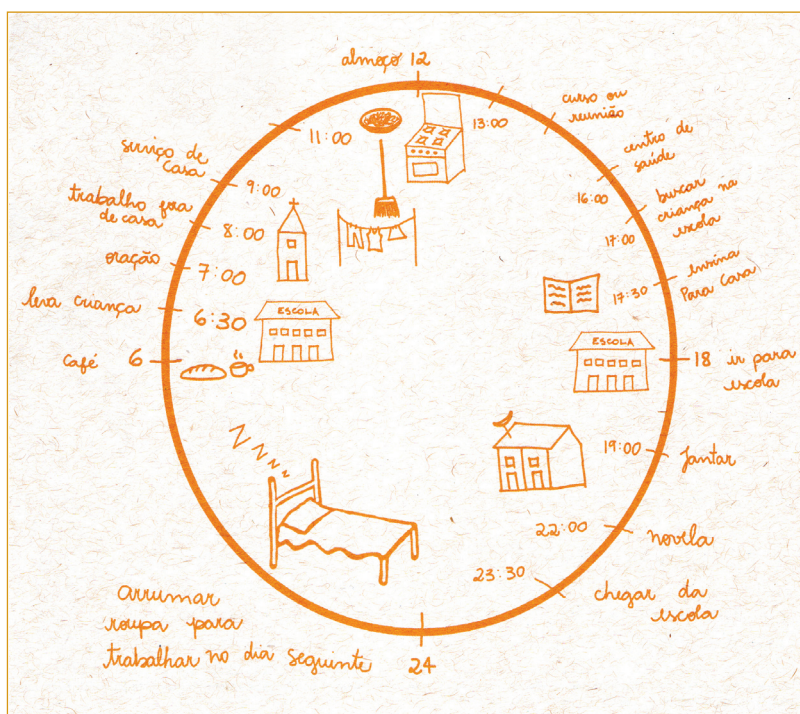 almoço 12
13:00
curso ou
reunião
centro de
saúde
16:00
buscar
criança na
escola
17:00
17:30
ensina
Para Casa
ESCOLA
18 ir para
escola
19:00
Jantar
22:00
novela
23:30
chegar da
escola
24
arrumar
roupa para
trabalhar no dia seguinte
ZZZZ
Café 6
leva criança
6:30
ESCOLA
oração
7:00
trabalho fora
de casa
8:00
serviço de
casa
9:00
11:00